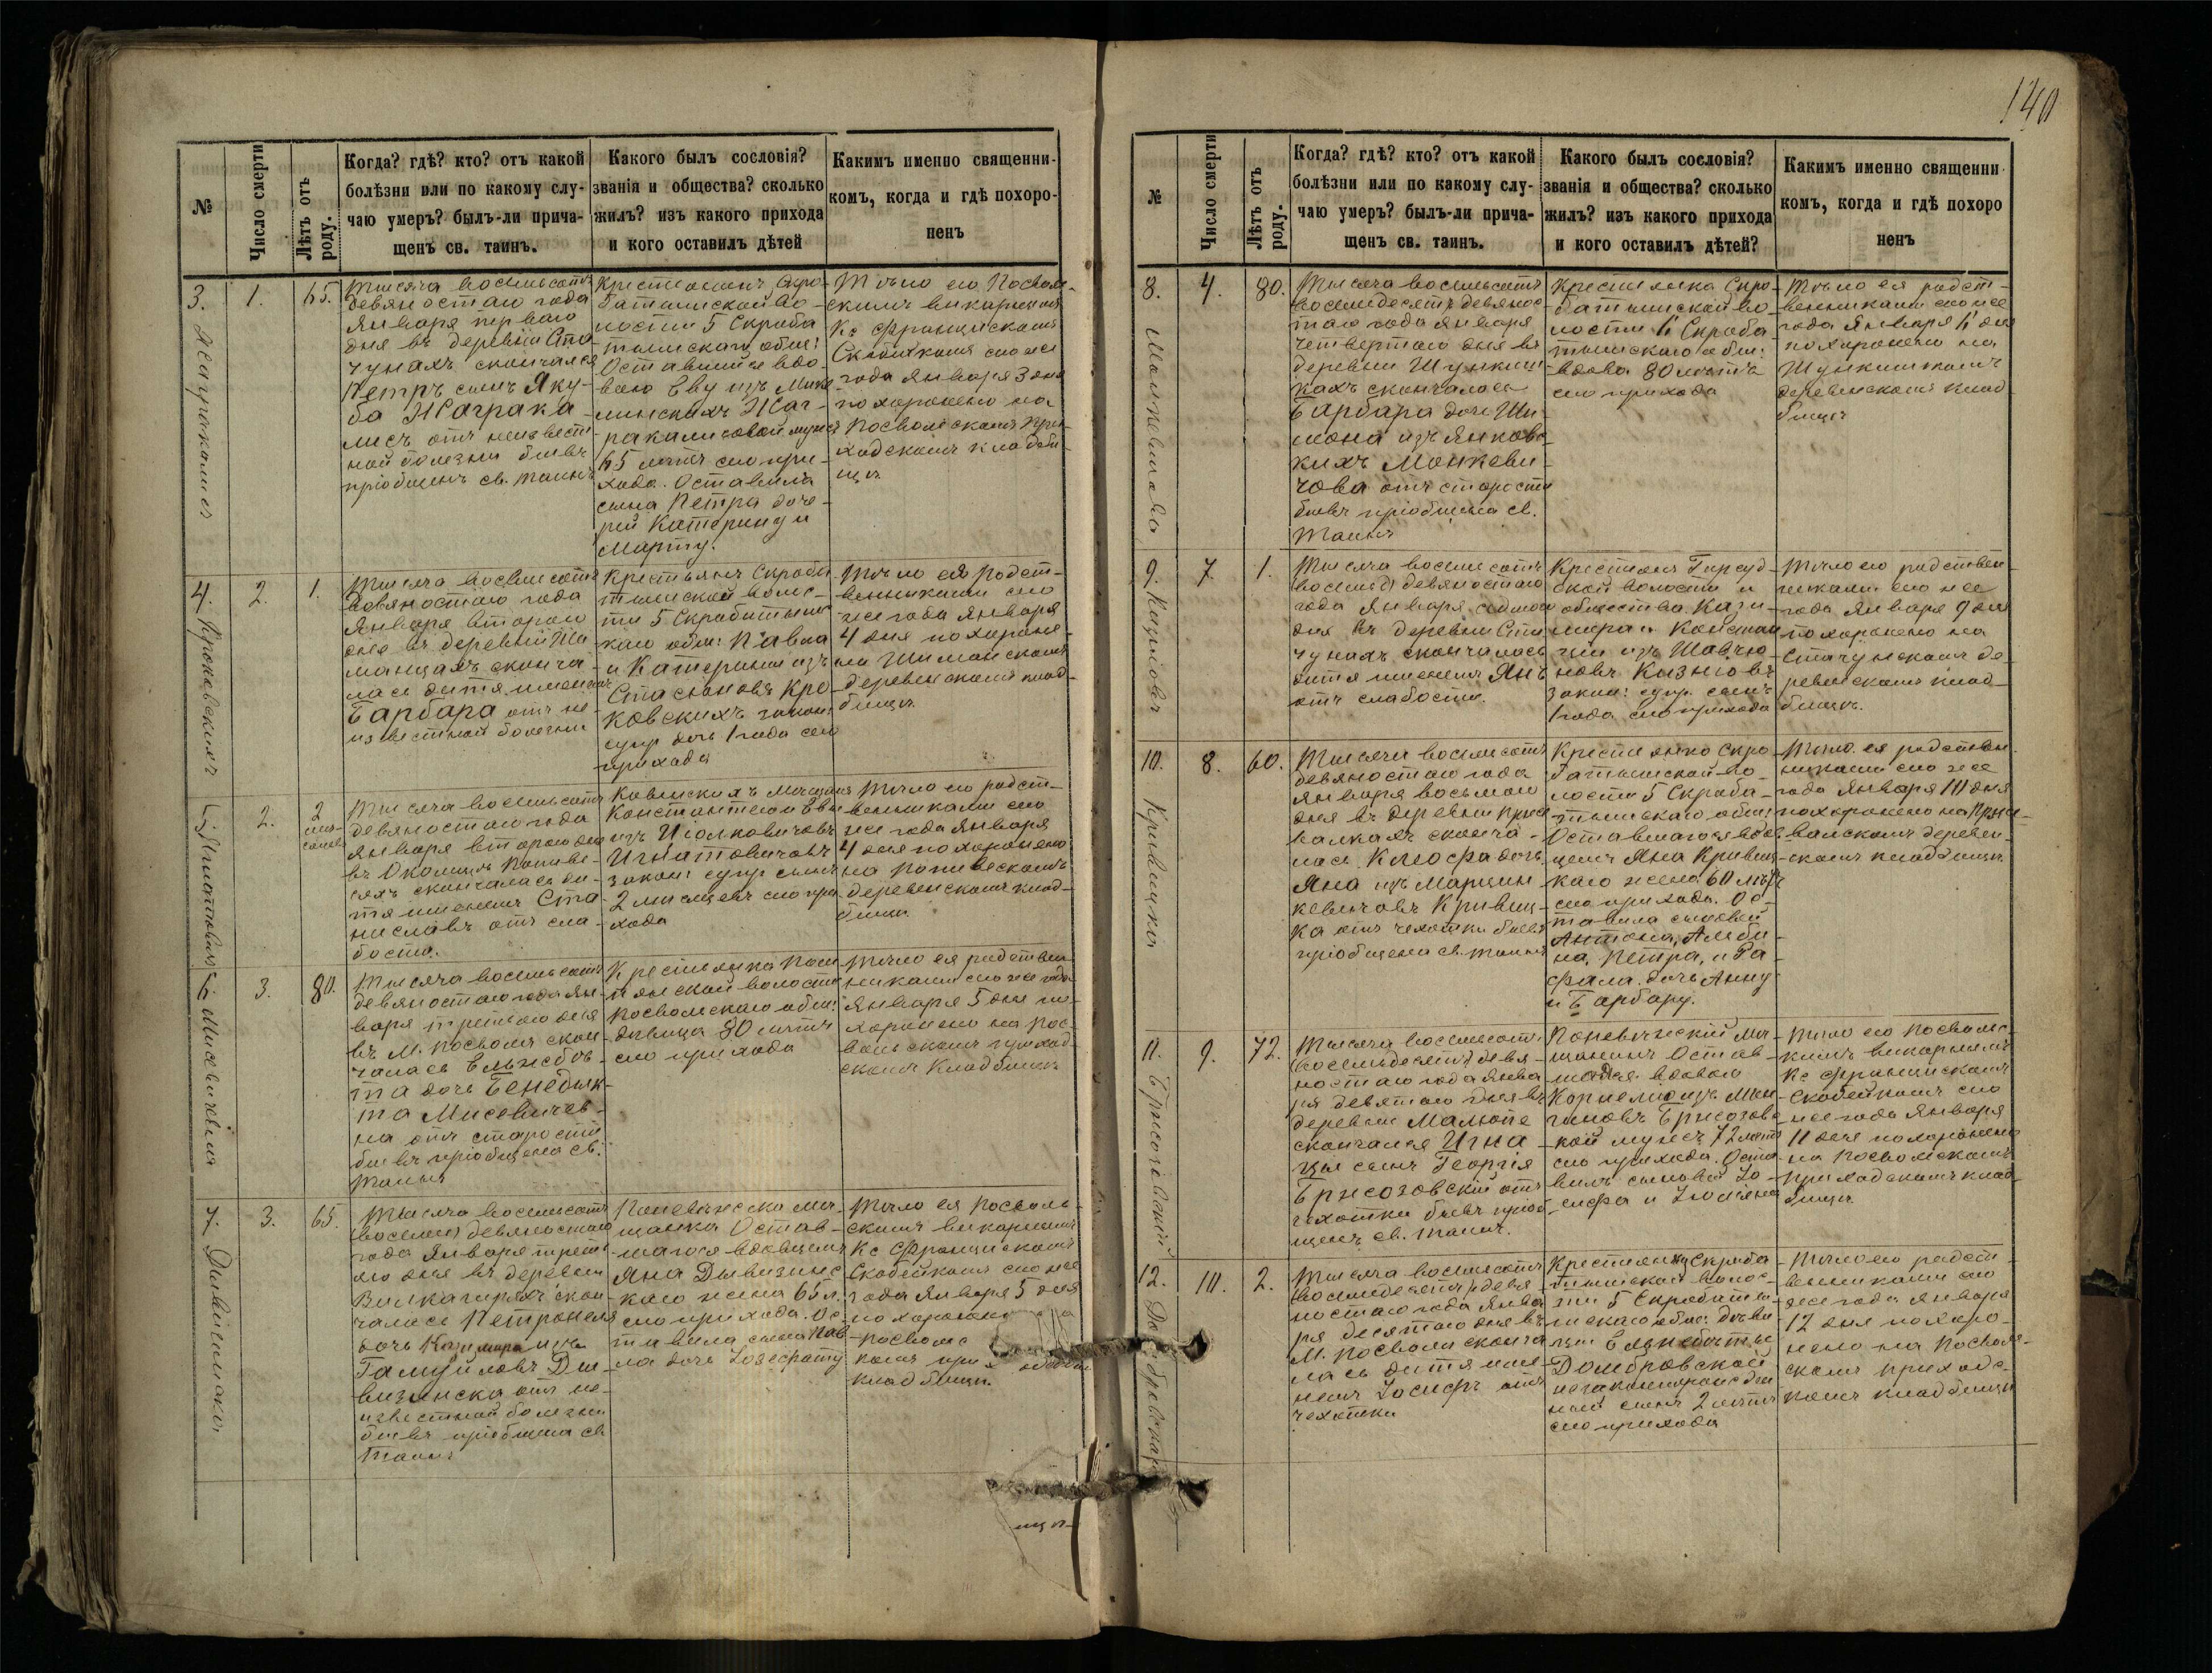 140
№
Число смерти
Лѣтъ отъ роду.
Когда? гдѣ? кто? отъ какой
болѣзни или по какому слу-
чаю умеръ? былъ-ли прича-
щенъ св. таинъ.
Какого былъ сословія?
званія и общества? сколько
жилъ? изъ какого прихода
и кого оставилъ дѣтей
Какимъ именно священни-
комъ, когда и гдѣ похоро-
ненъ
3.
1.
65.
Тысяча восемьсотъ
девяностаго года
Января перваго
дня въ деревни
чунахъ скончался
Петръ сынъ Яку-
ба Жаграка-
лисъ отъ неизвест-
ной болезни бывъ
пріобщенъ св. таинъ
Крестьянинъ Скро-
батишской во-
лости 5 Скроба-
тишскаго общ:
Оставившій вдо-
вою Еву изъ
Жаг-
ракалисовой мужъ
65 летъ сего при-
хода. Оставилъ
сына Петра доче-
рей Катерину и
Марту.
Тѣло его Посволь-
скимъ викарнымъ
Кс Францискомъ
Скабейкомъ сего же
года Января 3 дня
похоронено на
Посвольскомъ при-
ходскомъ кладби-
щи.
4.
2.
1.
Тысяча восемьсотъ
девяностаго года
Января второго
дня въ деревни Ши-
манцахъ сконча-
лась дитя именемъ
Барбара отъ не-
известной болезни
Крестьянъ Скроба-
тишской волос-
ти 5 Скробатишс
каго общ: Павла
и Катерины изъ
Стасюновъ Кро-
ковскихъ закон:
супр дочь 1 года сего
прихода
Тѣло ея родст-
венниками сего
же года Января
4 дня похороне-
но на Шиманскомъ
деревенскомъ клад-
бищи.
5
2.
2
Тысяча восемьсотъ
девяностаго года
Января второго дня
въ Околицѣ Паниве-
сяхъ скончалась ди-
тя именемъ Ста-
ниславъ отъ сла-
бости.
Ковенскихъ мещанъ
Константина Евы
изъ
Игнатовичовъ
закон: супр сынъ
2 месяцевъ сего при-
хода
Тѣло его родст-
венниками сего
же года Января
4 дня похоронено
на Панивескомъ
деревенскомъ клад-
бищи.
6.
3.
80.
Тысяча восемьсотъ
девяностаго года Ян-
варя третьяго дня
въ М. Посволи скон-
чалась Ельжбе-
та дочь Бенедык-
та Мисевичев-
на отъ старости
бывъ пріобщена св.
таинъ
Крестьянка
волости
Посвольскаго общ:
дѣвица 80 летъ
сего прихода
Тѣло ея родствен-
никами сего же года
Января 5 дня по-
хоронено на Пос-
вольскомъ приход-
скомъ кладбищи
7.
3.
65.
Тысяча восемьсотъ
(восемь) девяностаго
года Января треть-
яго дня въ деревни
скон-
чалась Петронеля
дочь Казимира изъ
Ды-
визинска отъ не-
известной болезни
бывъ пріобщена св.
таинъ
Поневѣжска ме-
щанка Остав-
шагося вдовцемъ
Яна Дывизинс
каго жена 65 л.
сего прихода. Ос-
тавила сына Пав-
ла дочь Іозефату
Тѣло ея Посволь-
скимъ викарнымъ
Кс Францискомъ
Скабейкомъ сего же
года Января 5 дня
похоронено
Посвольс
комъ прих
кладбищи.
№
Число смерти
Лѣтъ отъ роду.
Когда? гдѣ? кто? отъ какой
болѣзни или по какому слу-
чаю умеръ? былъ-ли прича-
щенъ св. таинъ.
Какого былъ сословія?
званія и общества? сколько
жилъ? изъ какого прихода
и кого оставилъ дѣтей?
Какимъ именно священни-
комъ, когда и гдѣ похоро
ненъ
8.
4.
80.
Тысяча восемьсотъ
восемдесятъ девянос-
таго года Января
четвертаго дня въ
деревни
скончалась
Барбара дочь Ши-
мона изъ Янковс-
кихъ Монкеви-
чова отъ старости
бывъ пріобщена св.
таинъ
Крестьянка Скро-
батишской во-
лости 6 Скроба-
тишскаго общ:
вдова 80 летъ
сего прихода
Тѣло ея родст-
венниками сего же
года Января 6 дня
похоронено на
деревенскомъ клад
бищи
9.
7.
1.
Тысяча восемьсотъ
(восемьд) девяностаго
года Января седьмого
дня въ деревни Ста-
чунахъ скончалась
дитя именемъ Янъ
отъ слабости.
Крестьянъ
ской волости и
общества. Кази-
мира и Констан
ціи изъ
новъ
закон: супр. сынъ
1 года сего прихода
Тѣло его родствен-
никами сего же
года Января 9 дня
похоронено на
Стачунскомъ де-
ревенскомъ клад-
бищи.
10.
8.
60.
Тысяча восемьсотъ
девяностаго года
Января восьмого
дня въ деревни
сконча-
лась дочь
Яна изъ Марцин-
кевичовъ Кривиц-
ка отъ чехотки бывъ
пріобщена св. таинъ
Крестьянка Скро-
батишской во-
лости 5 Скроба-
тишскаго общ:
Оставшагося вдов-
цемъ Яна Кривиц-
каго жена 60 летъ
сего прихода. Ос-
тавила сыновей
Антона, Альби-
на, Петра, и Ра-
фала. дочь Анну
и Барбару.
Тѣло ея родствен
никами сего же
года Января 10 дня
похоронено на
деревен-
скомъ кладбищи
Кривицка
11.
9.
72.
Тысяча восемьсотъ
(восемьдесятъ) девя-
ностаго года Янва
ря девятаго дня въ
деревни
скончался Игна-
цы сынъ Георгія
Брисозовскій отъ
чехотки бывъ пріоб-
щенъ св. таинъ.
Поневѣжскій ме-
щанинъ Остав-
шаяся вдовою
Корнелію изъ
Брисозовс-
кой мужъ 72 летъ
сего прихода. Оста-
вилъ сыновей Іо-
сифа и
Тѣло его Посвольс-
кимъ викарнымъ
Кс Францискомъ
Скабейкомъ сего
же года Января
11 дня похоронено
на Посвольскомъ
приходскомъ клад
бищи.
12.
10.
2.
Тысяча восемьсотъ
(восемьдесятъ) девя
ностаго года Янва
ря десятаго дня въ
М. Посволи сконча
лась дитя име-
немъ Іосифъ отъ
чехотки
Крестьянки Скроба
тишской волос-
ти 5 Скробати-
шскаго общ. дѣви
цы Ельжбеты
Домбровской
незаконнорожден
ный сынъ 2 летъ
сего прихода
Тѣло его родст-
венниками сего
же года Января
12 дня похоро-
нено на Посволь-
скомъ приходс-
комъ кладбищи